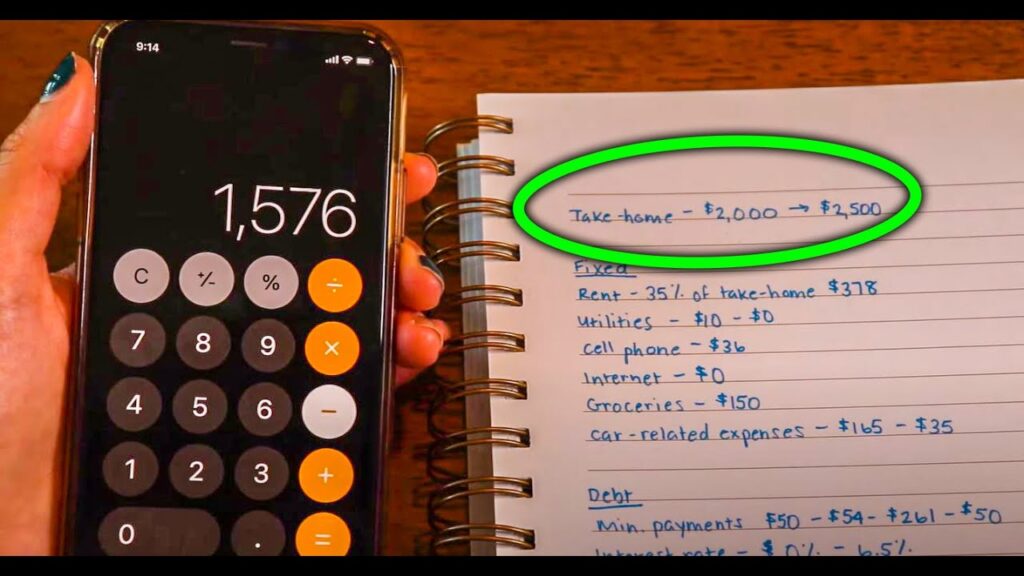 9:14
1,576
C +/- % ÷
7 8 9 ×
4 5 6 −
1 2 3 +
0 . =
Take-home - $2,000 → $2,500
Fixed
Rent - 35% of take-home $378
Utilities - $10 - $0
Cell phone - $36
Internet - $0
Groceries - $150
car-related expenses - $165 - $35
Debt
Min. payments $50 - $54 - $261 - $50
Interest rate - $ 0% - 6.5%